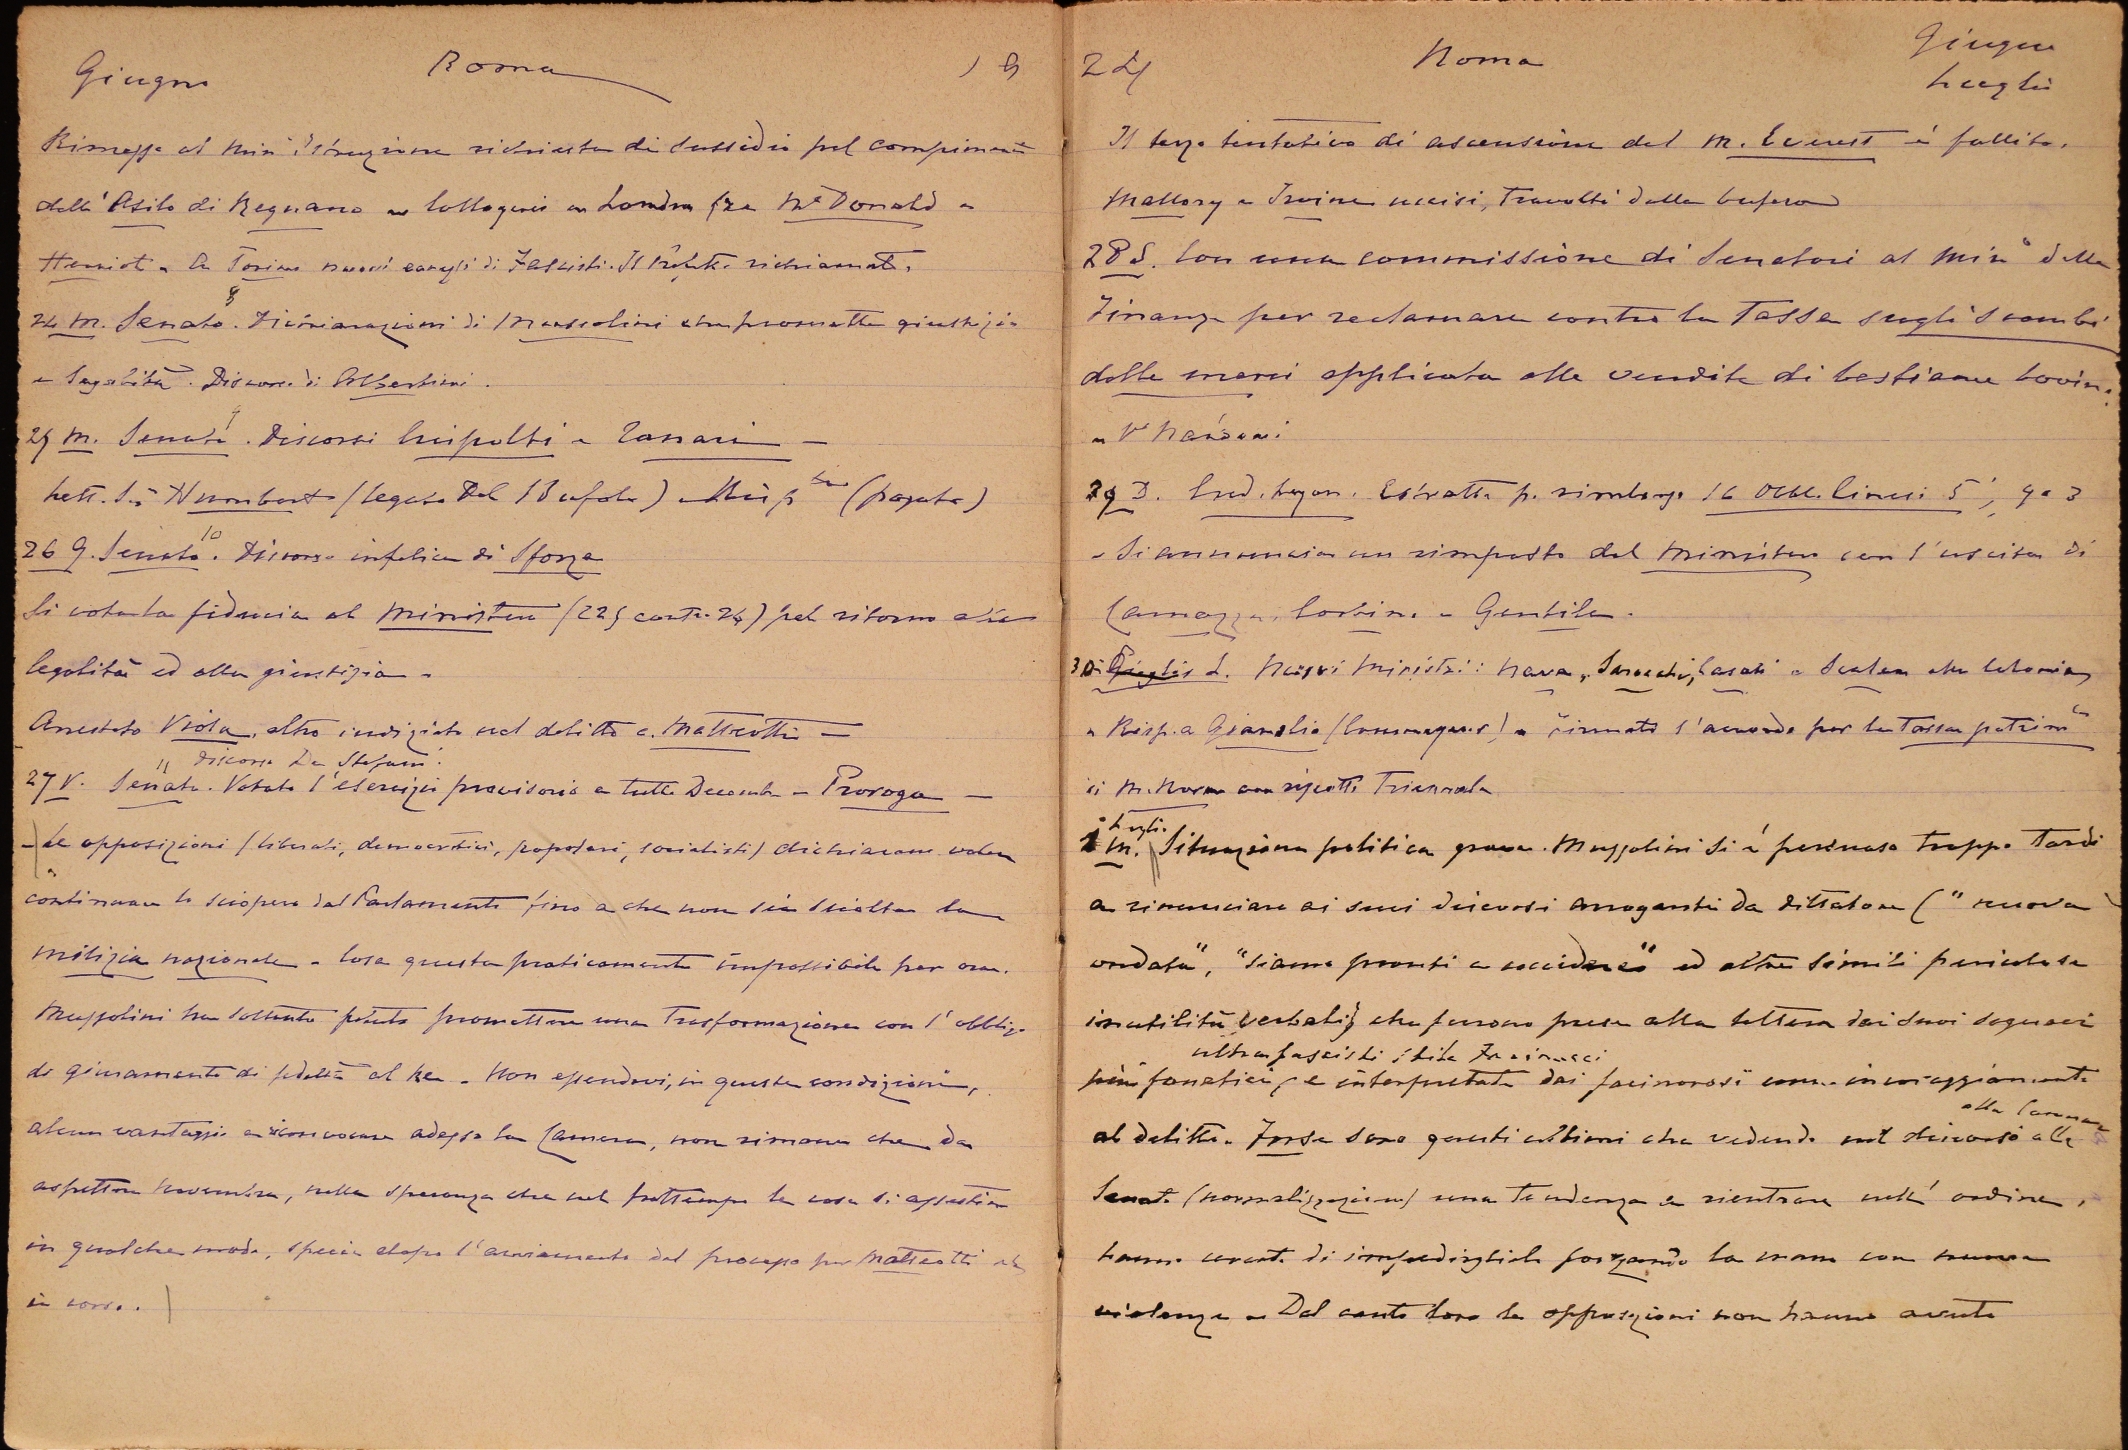 Giugno Roma 19
Rimesso al Min° Istruzione richiesta di sussidio pel compimento
dell'Asilo di Regnano – Colloquii a Londra fra McDonald e
Herriot – A Torino nuovi eccessi di Fascisti. Il Prefetto richiamato.
24 M. Senato 8. Dichiarazioni di Mussolini che promette giustizia
e legalità. Discorso di Albertini.
25 M. Senato 9. Discorsi Crispolti e Zanari –
Lett. Humbert (legato Del Bufalo) (pagato)
26 G. Senato 10. Discorso infelice di Sforza
Si vota la fiducia al Ministero (225 contro 24) pel ritorno alla
legalità ed alla giustizia –
Arrestato Viola, altro indiziato nel delitto c. Matteotti –
discorso De Stefani.
27 V. Senato 11. Votato l'esercizio provvisorio a tutto Decembre – Proroga –
– Le opposizioni (liberali, democratici, popolari, socialisti) dichiarano voler
continuare lo sciopero dal Parlamento fino a che non sia sciolta la
milizia nazionale – Cosa questa praticamente impossibile per ora.
Mussolini ha soltanto potuto promettere una trasformazione con l'obbligo
di giuramento di fedeltà al Re – Non essendovi, in queste condizioni,
alcun vantaggio a riconvocare adesso la Camera, non rimane che da
aspettare Novembre, nella speranza che nel frattempo le cose si assestino
in qualche modo, specie dopo l'avviamento del processo per Matteotti
in corso.
24 Roma Giugno
Luglio
Il terzo tentativo di ascensione del M. Everest è fallito.
Mallory e Irvine uccisi, travolti dalla bufera
28 S. Con una commissione di Senatori al Min° delle
Finanze per reclamare contro la Tassa sugli scambi
delle merci applicata alle vendite di bestiame bovino.
–
29 D. Cred. Estratto p. rimborso 16 Obbl. 5
– Si annuncia un rimpasto del Ministero con l'uscita di
Carnazza, Corbino e Gentile.
30 Luglio L. Nuovi Ministri: Nava, Sarrocchi, Casati e Scalea alle Colonie
– Risp. a – Firmato l'accordo per la Tassa patrim
di M. Norma con riscatto Triennale
1 Luglio M. Situazione politica grave. Mussolini si è persuaso troppo tardi
a rinunciare ai suoi discorsi arroganti da dittatore ("nuova
ondata", "siamo pronti a uccidere" ed altre simili pericolose
inutilità verbali) che furono prese alla lettera dai suoi seguaci
ultrafascisti stile Farinacci
più fanatici, e interpretate dai facinorosi come incoraggiamento
alla Camera
al delitto. Forse sono questi ultimi che vedendo nel discorso alla
Senato (normalizzazione) una tendenza a rientrare nell'ordine,
hanno cercato di impedirglielo forzando la mano con nuova
violenza – Dal canto loro le opposizioni non hanno avuto